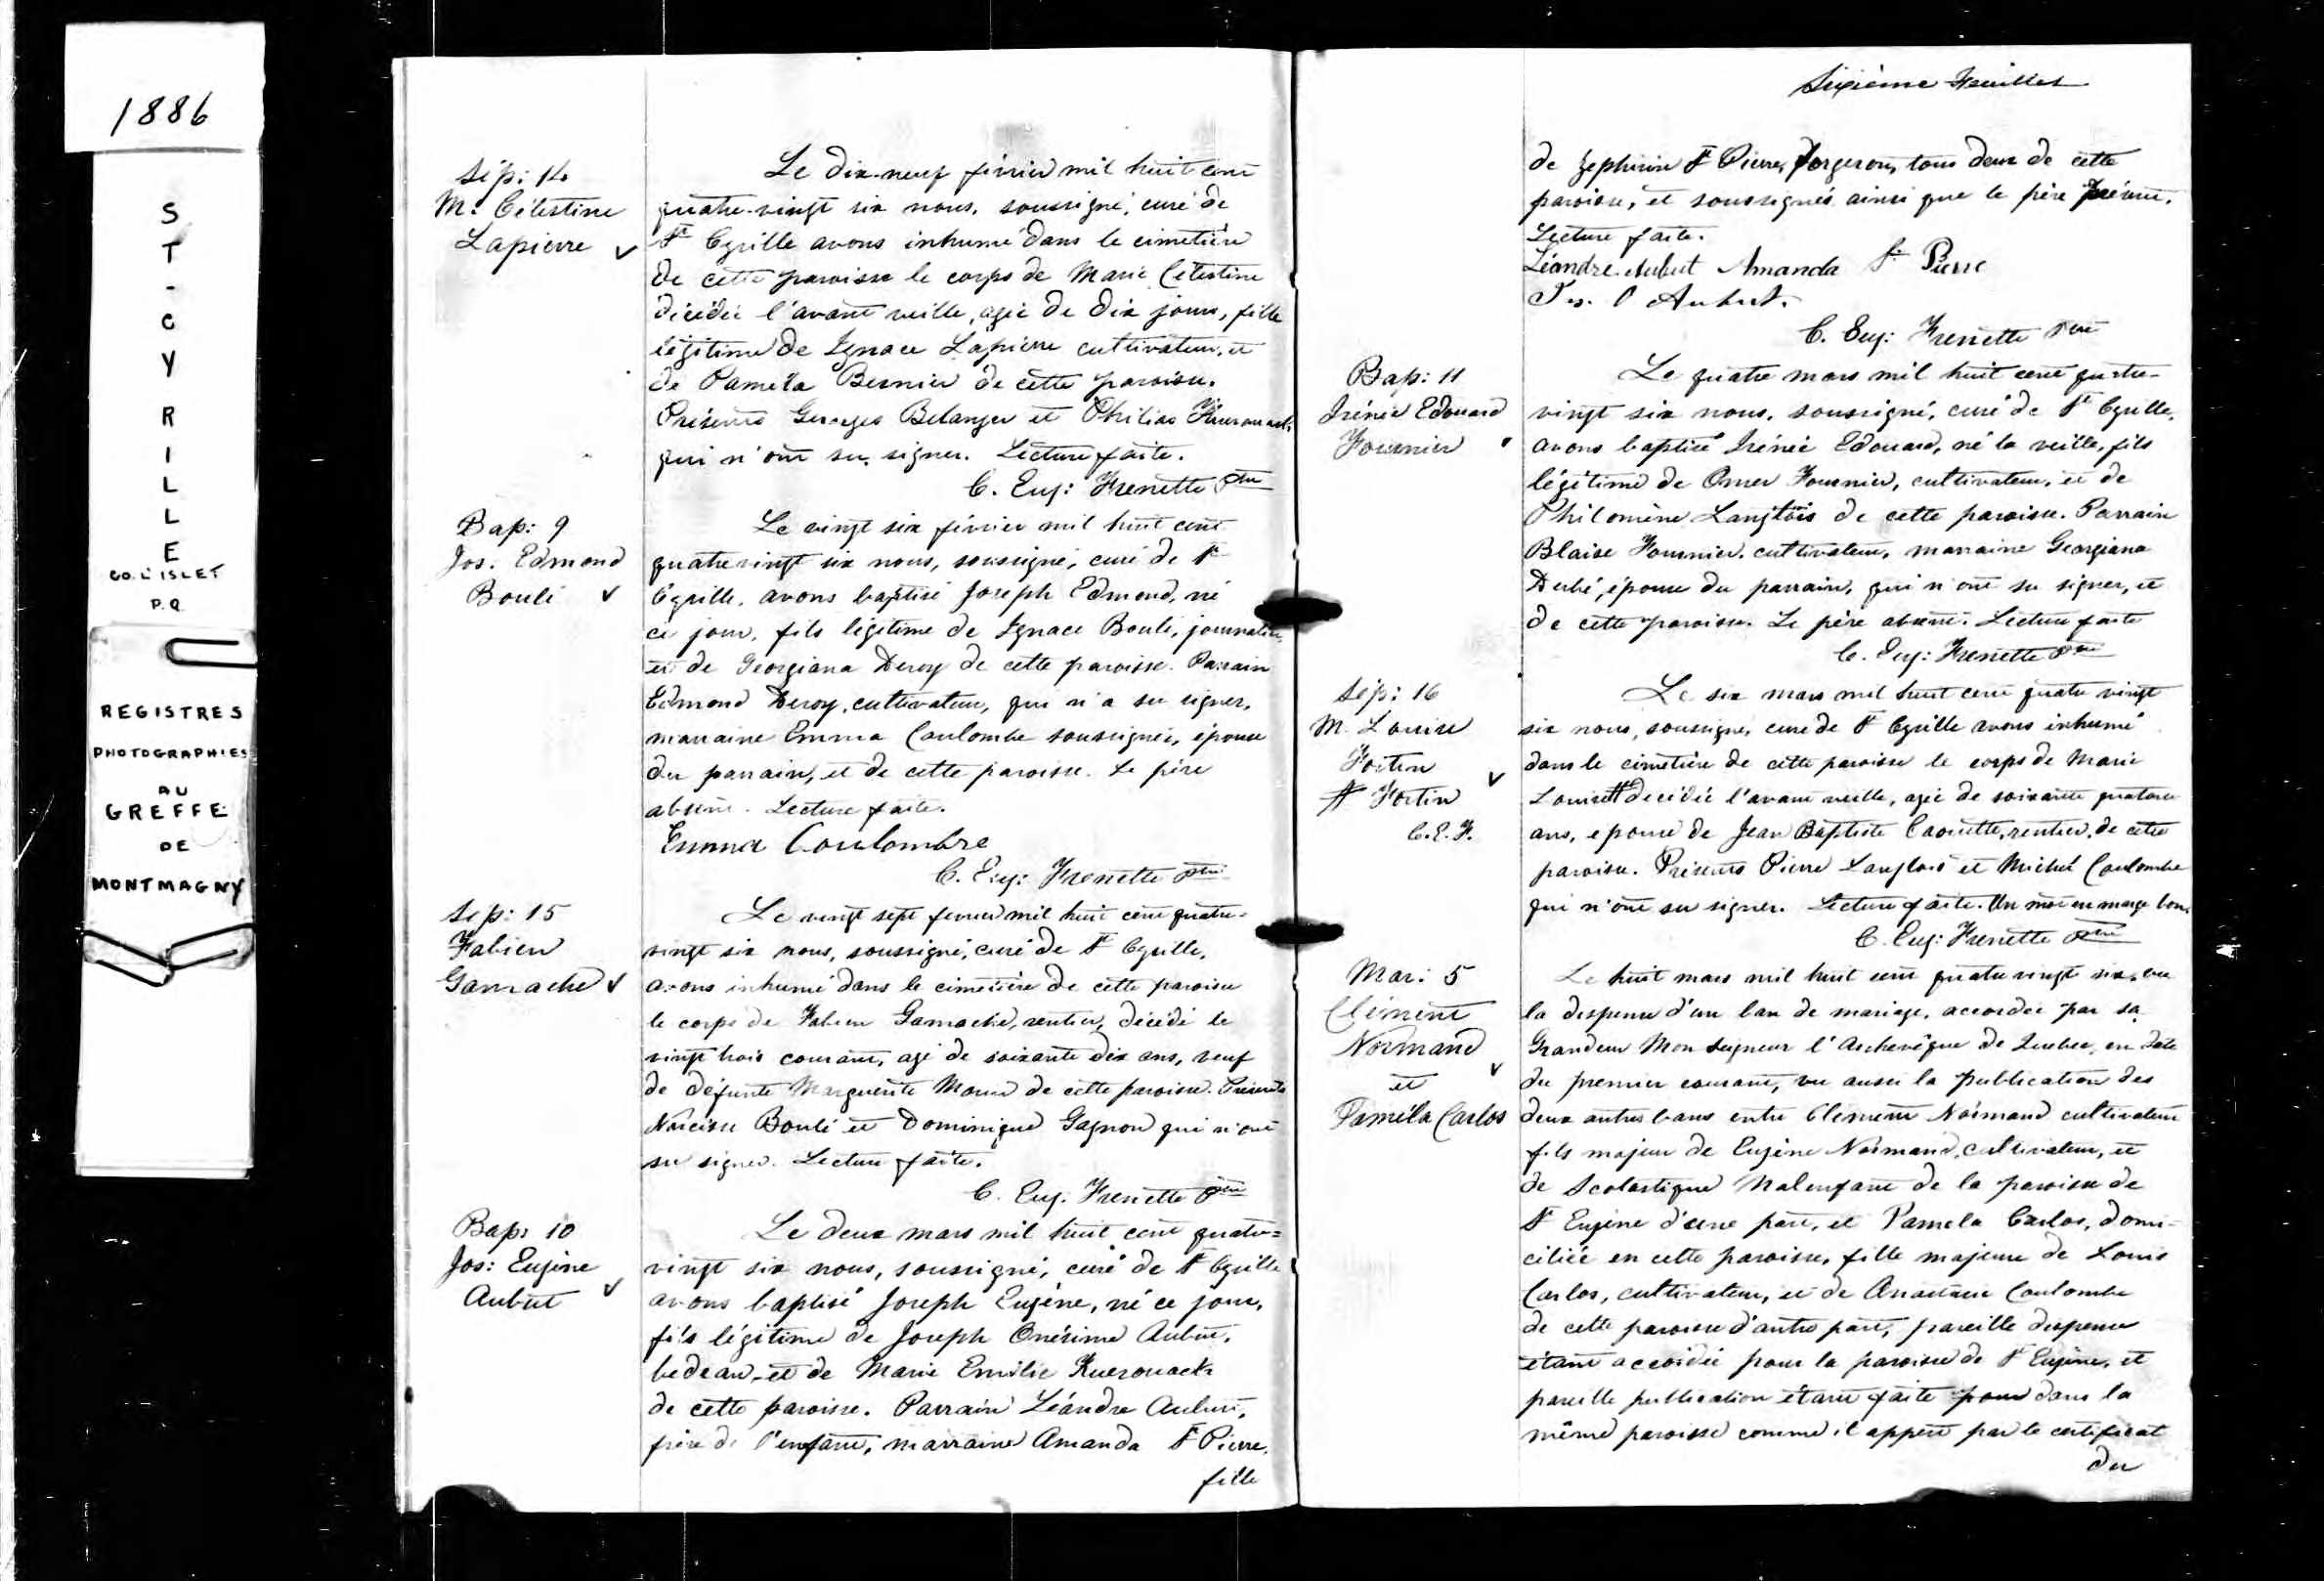 1886
ST-CYRILLE
CO. L'ISLET
P.Q.
REGISTRES
PHOTOGRAPHIES
AU
GREFFE
DE
MONTMAGNY
Sép: 14
M. Célestine
Lapierre
Le dix-neuf février mil huit cent
quatre-vingt six nous, soussigné, curé de
St Cyrille avons inhumé dans le cimetière
de cette paroisse le corps de Marie Célestine
décédée l'avant veille, agée de dix jours, fille
légitime de Ignace Lapierre cultivateur, et
de Pamela Bernier de cette paroisse.
Présents Georges Belanger et Philias Kuerouack
qui n'ont su signer. Lecture faite.
C. Eug: Frenette Ptre
Bap: 9
Jos. Edmond
Boulé
Le vingt six février mil huit cent
quatre vingt six nous, soussigné, curé de St
Cyrille, avons baptisé Joseph Edmond, né
ce jour, fils légitime de Ignace Boulé, journalier,
et de Georgiana Deroy de cette paroisse. Parrain
Edmond Deroy, cultivateur, qui n'a su signer,
marraine Emma Coulombe soussignée, épouse
du parrain, et de cette paroisse. Le père
absent. Lecture faite.
Emma Coulombre
C. Eug: Frenette Ptre
Sép: 15
Fabien
Gamache
Le vingt sept fevrier mil huit cent quatre-
vingt six nous, soussigné, curé de St Cyrille,
avons inhumé dans le cimetière de cette paroisse
le corps de Fabien Gamache, rentier, décédé le
vingt trois courant, agé de soixante dix ans, veuf
de défunte Marguerite Morin de cette paroisse. Présents
Narcisse Boulé et Dominique Gagnon qui n'ont
su signer. Lecture faite.
C. Eug. Frenette Ptre
Bap: 10
Jos: Eugène
Aubut
Le deux mars mil huit cent quatre=
vingt six nous, soussigné, curé de St Cyrille
avons baptisé Joseph Eugène, né ce jour,
fils légitime de Joseph Onésime Aubut,
bedeau, et de Marie Emilie Kuerouack
de cette paroisse. Parrain Léandre Aubut,
frère de l'enfant, marraine Amanda St Pierre,
fille
Sixième Feuillet
de Zephirin St Pierre, forgeron, tous deux de cette
paroisse, et soussignés ainsi que le père présent.
Lecture faite.
Léandre Aubut Amanda St Pierre
Jos. O Aubut.
C. Eug: Frenette Ptre
Bap: 11
Irénée Edouard
Fournier
Le quatre mars mil huit cent quatre-
vingt six nous, soussigné, curé de St Cyrille,
avons baptisé Irénée Edouard, né la veille, fils
légitime de Omer Fournier, cultivateur, et de
Philomène Langlois de cette paroisse. Parrain
Blaise Fournier, cultivateur, marraine Georgiana
Dubé, épouse du parrain, qui n'ont su signer, et
de cette paroisse. Le père absent. Lecture faite
C. Eug: Frenette Ptre
Sép: 16
M. Louise
Fortin
# Fortin
C.E.F.
Le six mars mil huit cent quatre vingt
six nous, soussigné, curé de St Cyrille avons inhumé
dans le cimetière de cette paroisse le corps de Marie
Louise # decédée l'avant veille, agée de soixante quatorze
ans, epouse de Jean Baptiste Caouette, rentier, de cette
paroisse. Présents Pierre Langlois et Michel Coulombe
qui n'ont su signer. Lecture faite. Un mot en marge bon.
C. Eug: Frenette Ptre
Mar: 5
Clément
Normand
et
Paméla Carlos
Le huit mars mil huit cent quatre vingt six, vu
la dispense d'un ban de mariage, accordée par sa
Grandeur Mon seigneur l'Archevêque de Quebec, en date
du premier courant, vu aussi la publication des
deux autres bans entre Clément Normand cultivateur
fils majeur de Eugène Normand, cultivateur, et
de Scolastique Malenfant de la paroisse de
St Eugène d'une part, et Pamela Carlos, domi-
ciliée en cette paroisse, fille majeure de Louis
Carlos, cultivateur, et de Anastasie Coulombe
de cette paroisse d'autre part, pareille dispense
étant accordée pour la paroisse de St Eugène, et
pareille publication étant faite pour dans la
même paroisse comme il appert par le certificat
du